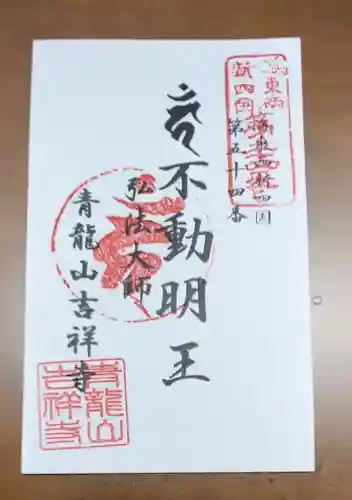 播磨西新四国
第五十四番
不動明王
弘法大師
青龍山吉祥寺
青龍山
吉祥寺